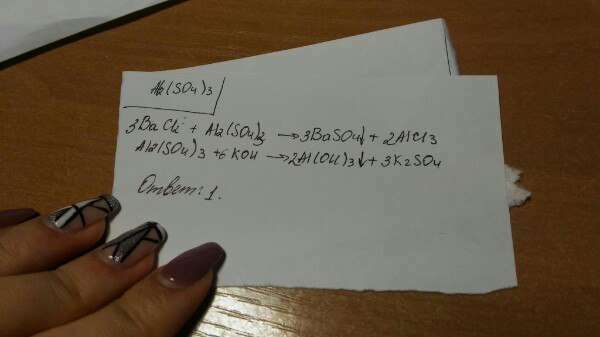 Al2(SO4)3
3BaCl2 + Al2(SO4)3 → 3BaSO4↓ + 2AlCl3
Al2(SO4)3 + 6 KOH → 2Al(OH)3↓ + 3K2SO4
Ответ: 1.